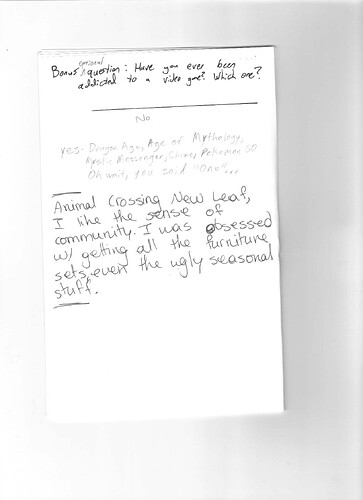 Bonus personal question: Have you ever been
addicted to a video game? Which one?
No
Yes - Dragon Age, Age of Mythology,
Mystic Messenger, Chime, Pokemon GO
Oh wait, you said "one"...
Animal Crossing New Leaf,
I like the sense of
community. I was obsessed
w/ getting all the furniture
sets, even the ugly seasonal
stuff.